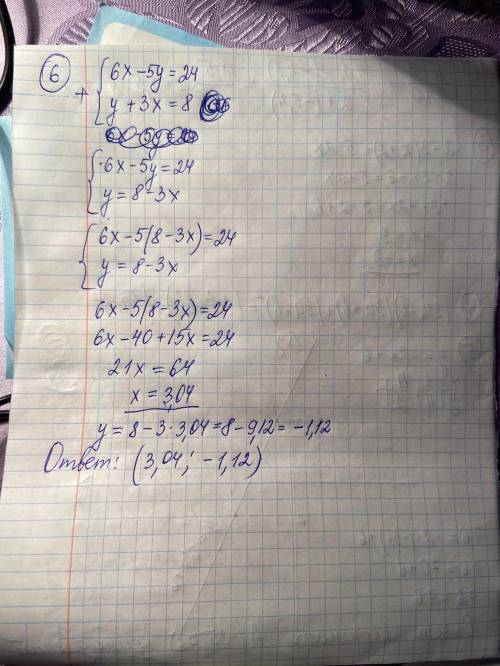 6
+ { 6x - 5y = 24
y + 3x = 8
{ 6x - 5y = 24
y = 8 - 3x
{ 6x - 5(8 - 3x) = 24
y = 8 - 3x
6x - 5(8 - 3x) = 24
6x - 40 + 15x = 24
21x = 64
x = 3,04
y = 8 - 3 · 3,04 = 8 - 9,12 = -1,12
Ответ: (3,04; -1,12)